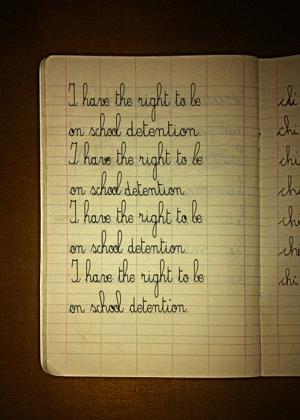 I have the right to be
on school detention.
I have the right to be
on school detention.
I have the right to be
on school detention.
I have the right to be
on school detention.
chi
chi
chi
chi
chi
che
chi